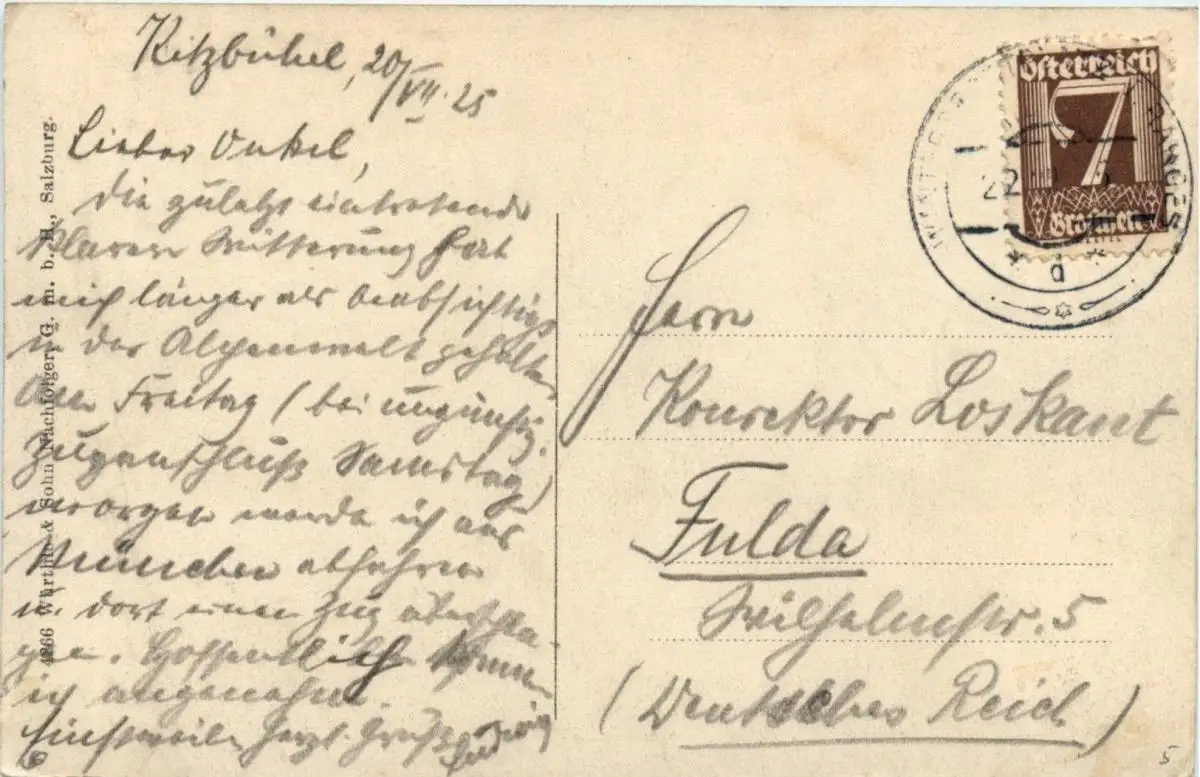 Kitzbühel, 20/VII. 25
Lieber Onkel,
die zuletzt eintretende
klarere Witterung hat
mich länger als beabsichtigt
in der Alpenwelt gehalten.
Am Freitag (bei ungünstig.
Zuganschluß Samstag)
morgen werde ich aus
München abfahren
u. dort einen Zug überschla-
gen. Hoffentlich komme
ich angenehm.
Einstweilen herzl. Gruß Ludwig
4866 Würthle & Sohn Nachfolger G. m. b. H., Salzburg.
Österreich
7
Groschen
22
d
Herrn
Konrektor Loskant
Fulda
Wilhelmstr. 5
(Deutsches Reich)
5